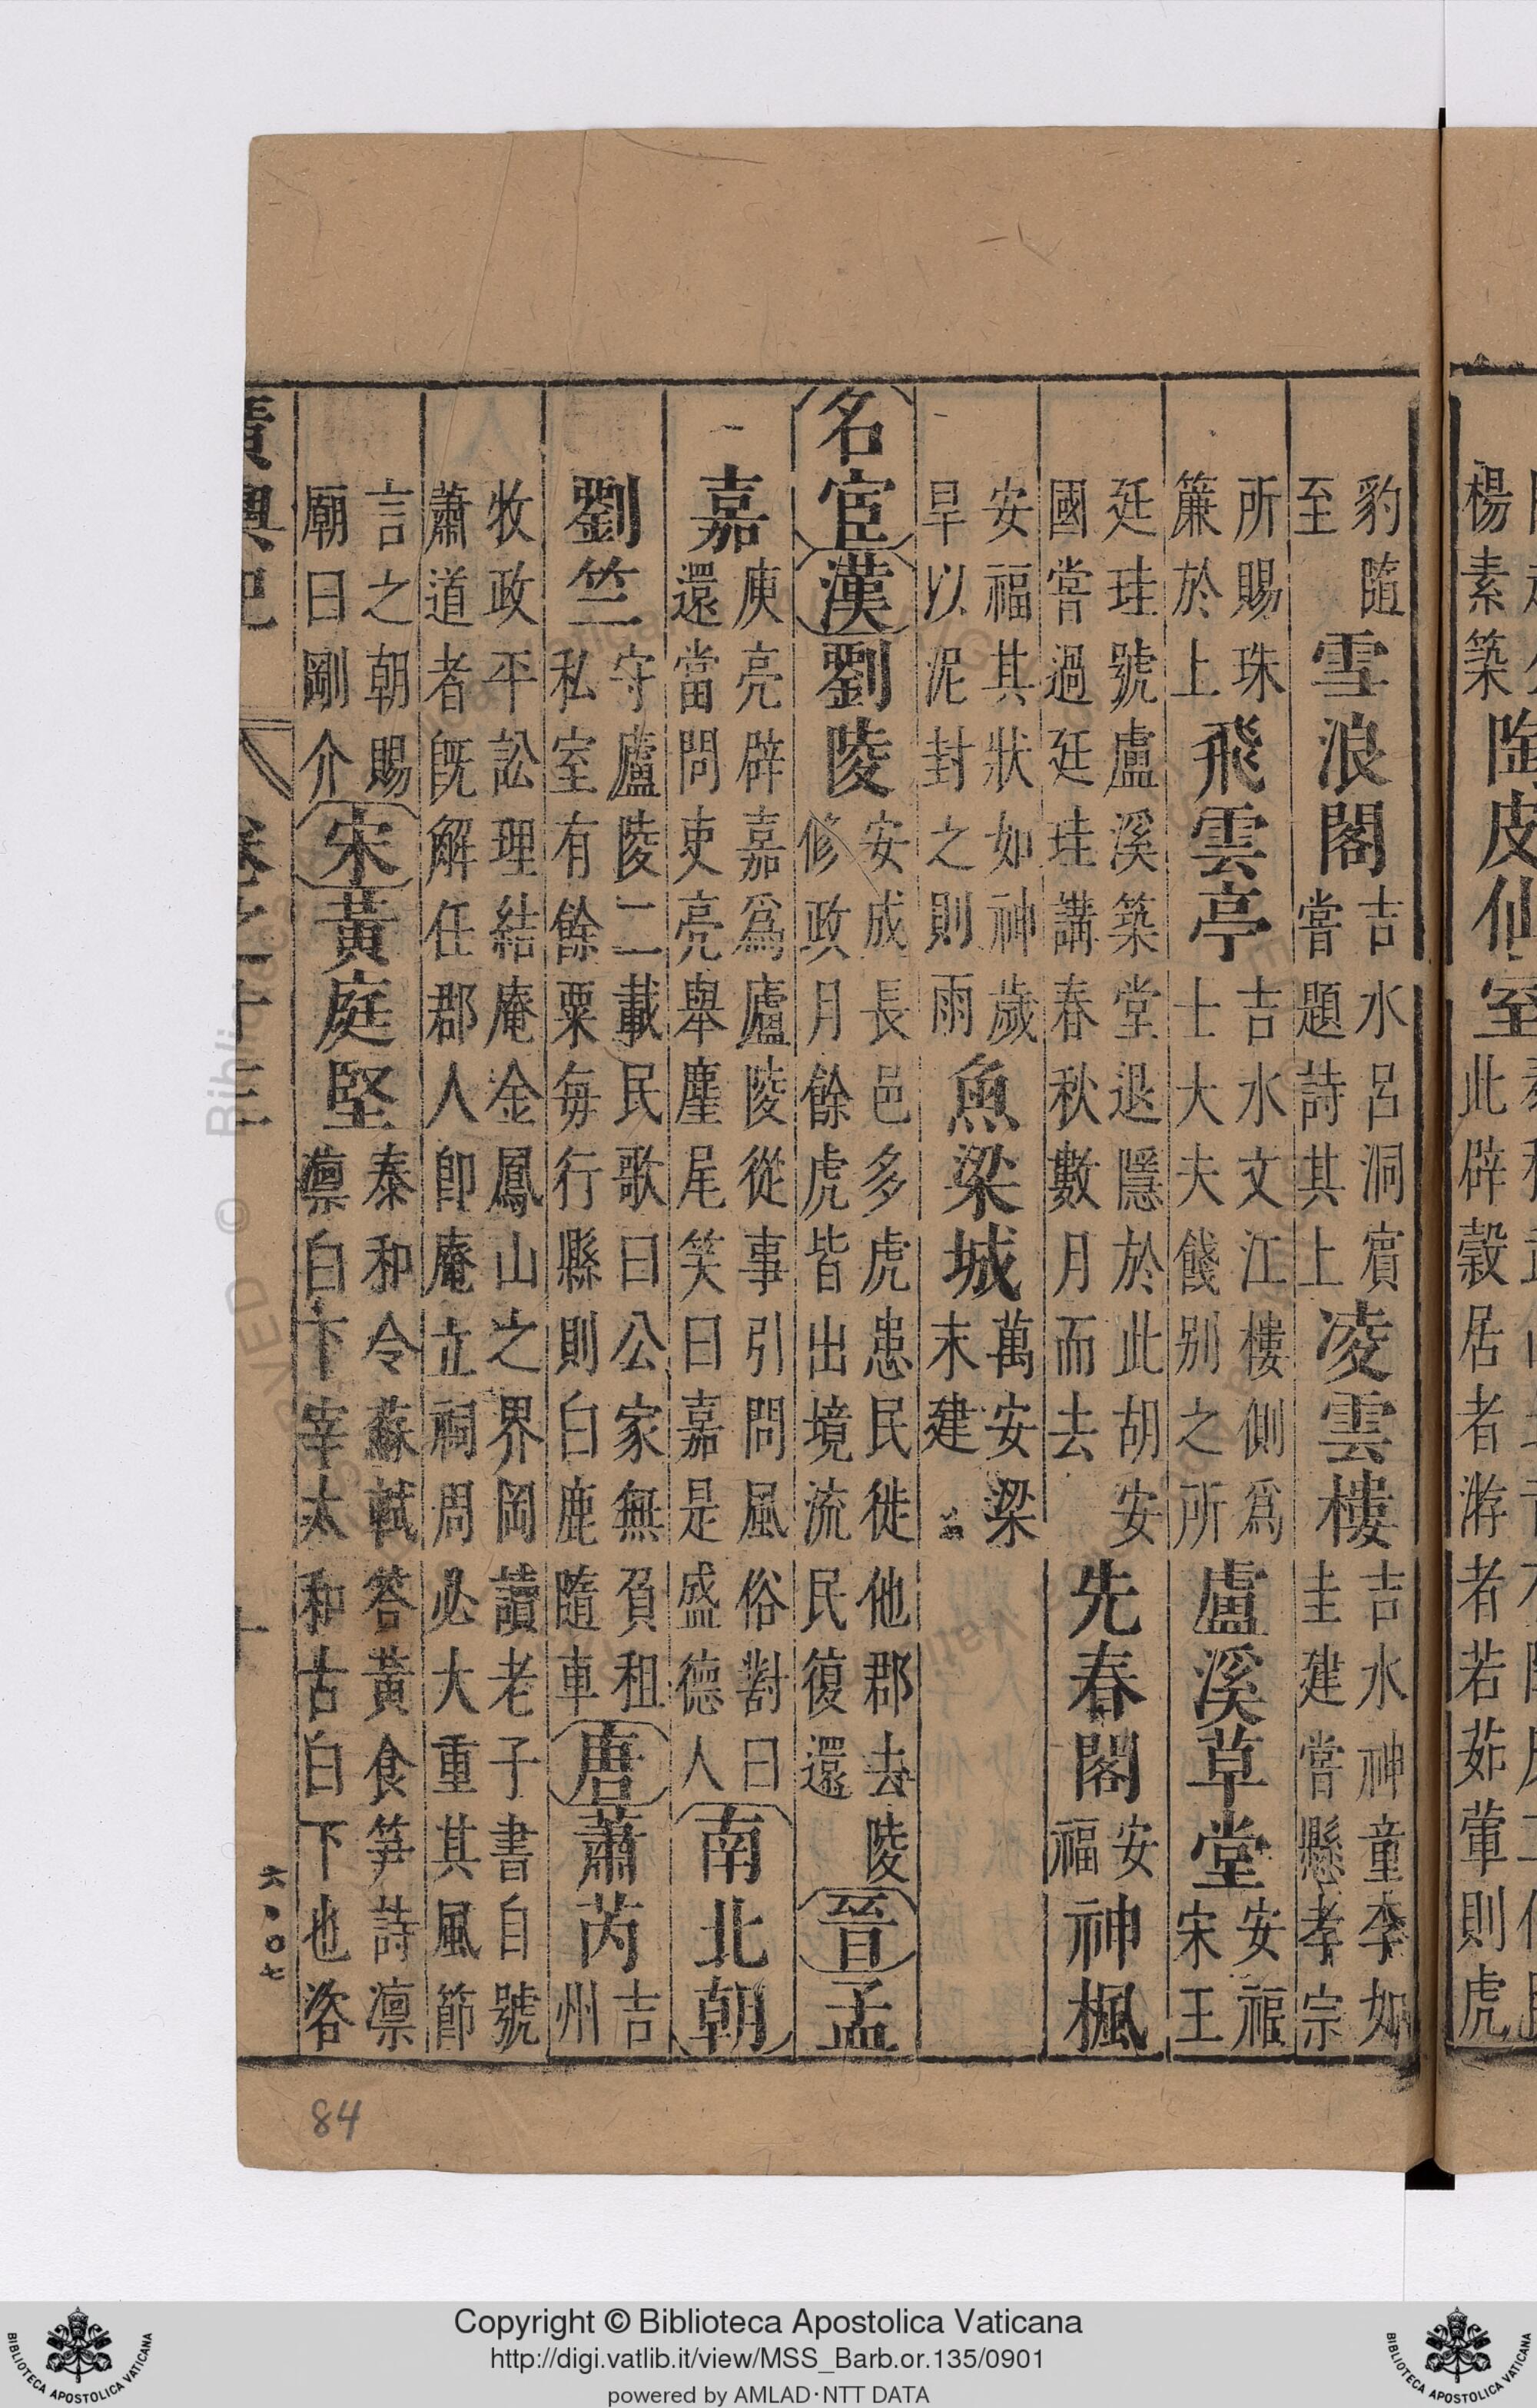 楊素築
陶皮仙室
此辟穀居者游者若茹葷則虎
豹隨
至
雪浪閣
吉水呂洞賓
嘗題詩其上
凌雲樓
吉水神童李如
圭建嘗懸孝宗
所賜珠
簾於上
飛雲亭
吉水文江樓側爲
士大夫餞别之所
盧溪草堂
安福
宋王
廷珪號盧溪築堂退隱於此胡安
國嘗過廷珪講春秋數月而去
先春閣
安
福
神楓
安福其狀如神歲
旱以泥封之則雨
魚梁城
萬安梁
末建
名宦
漢
劉陵
安成長邑多虎患民徙他郡去陵
修政月餘虎皆出境流民復還
晉
孟
嘉
庾亮辟嘉爲廬陵從事引問風俗對曰
還當問吏亮舉麈尾笑曰嘉是盛德人
南北朝
劉竺
守廬陵二載民歌曰公家無負租
私室有餘粟每行縣則白鹿隨車
唐
蕭芮
吉
州
牧政平訟理結庵金鳳山之界岡讀老子書自號
蕭道者旣解任郡人卽庵立祠周必大重其風節
言之朝賜
廟曰剛介
宋
黃庭堅
泰和令蘇軾答黃食笋詩凛
凛白下宰太和古白下也洛
廣輿記
卷之十三
十
84
Copyright © Biblioteca Apostolica Vaticana
http://digi.vatlib.it/view/MSS_Barb.or.135/0901
powered by AMLAD·NTT DATA
BIBLIOTECA APOSTOLICA VATICANA
BIBLIOTECA APOSTOLICA VATICANA